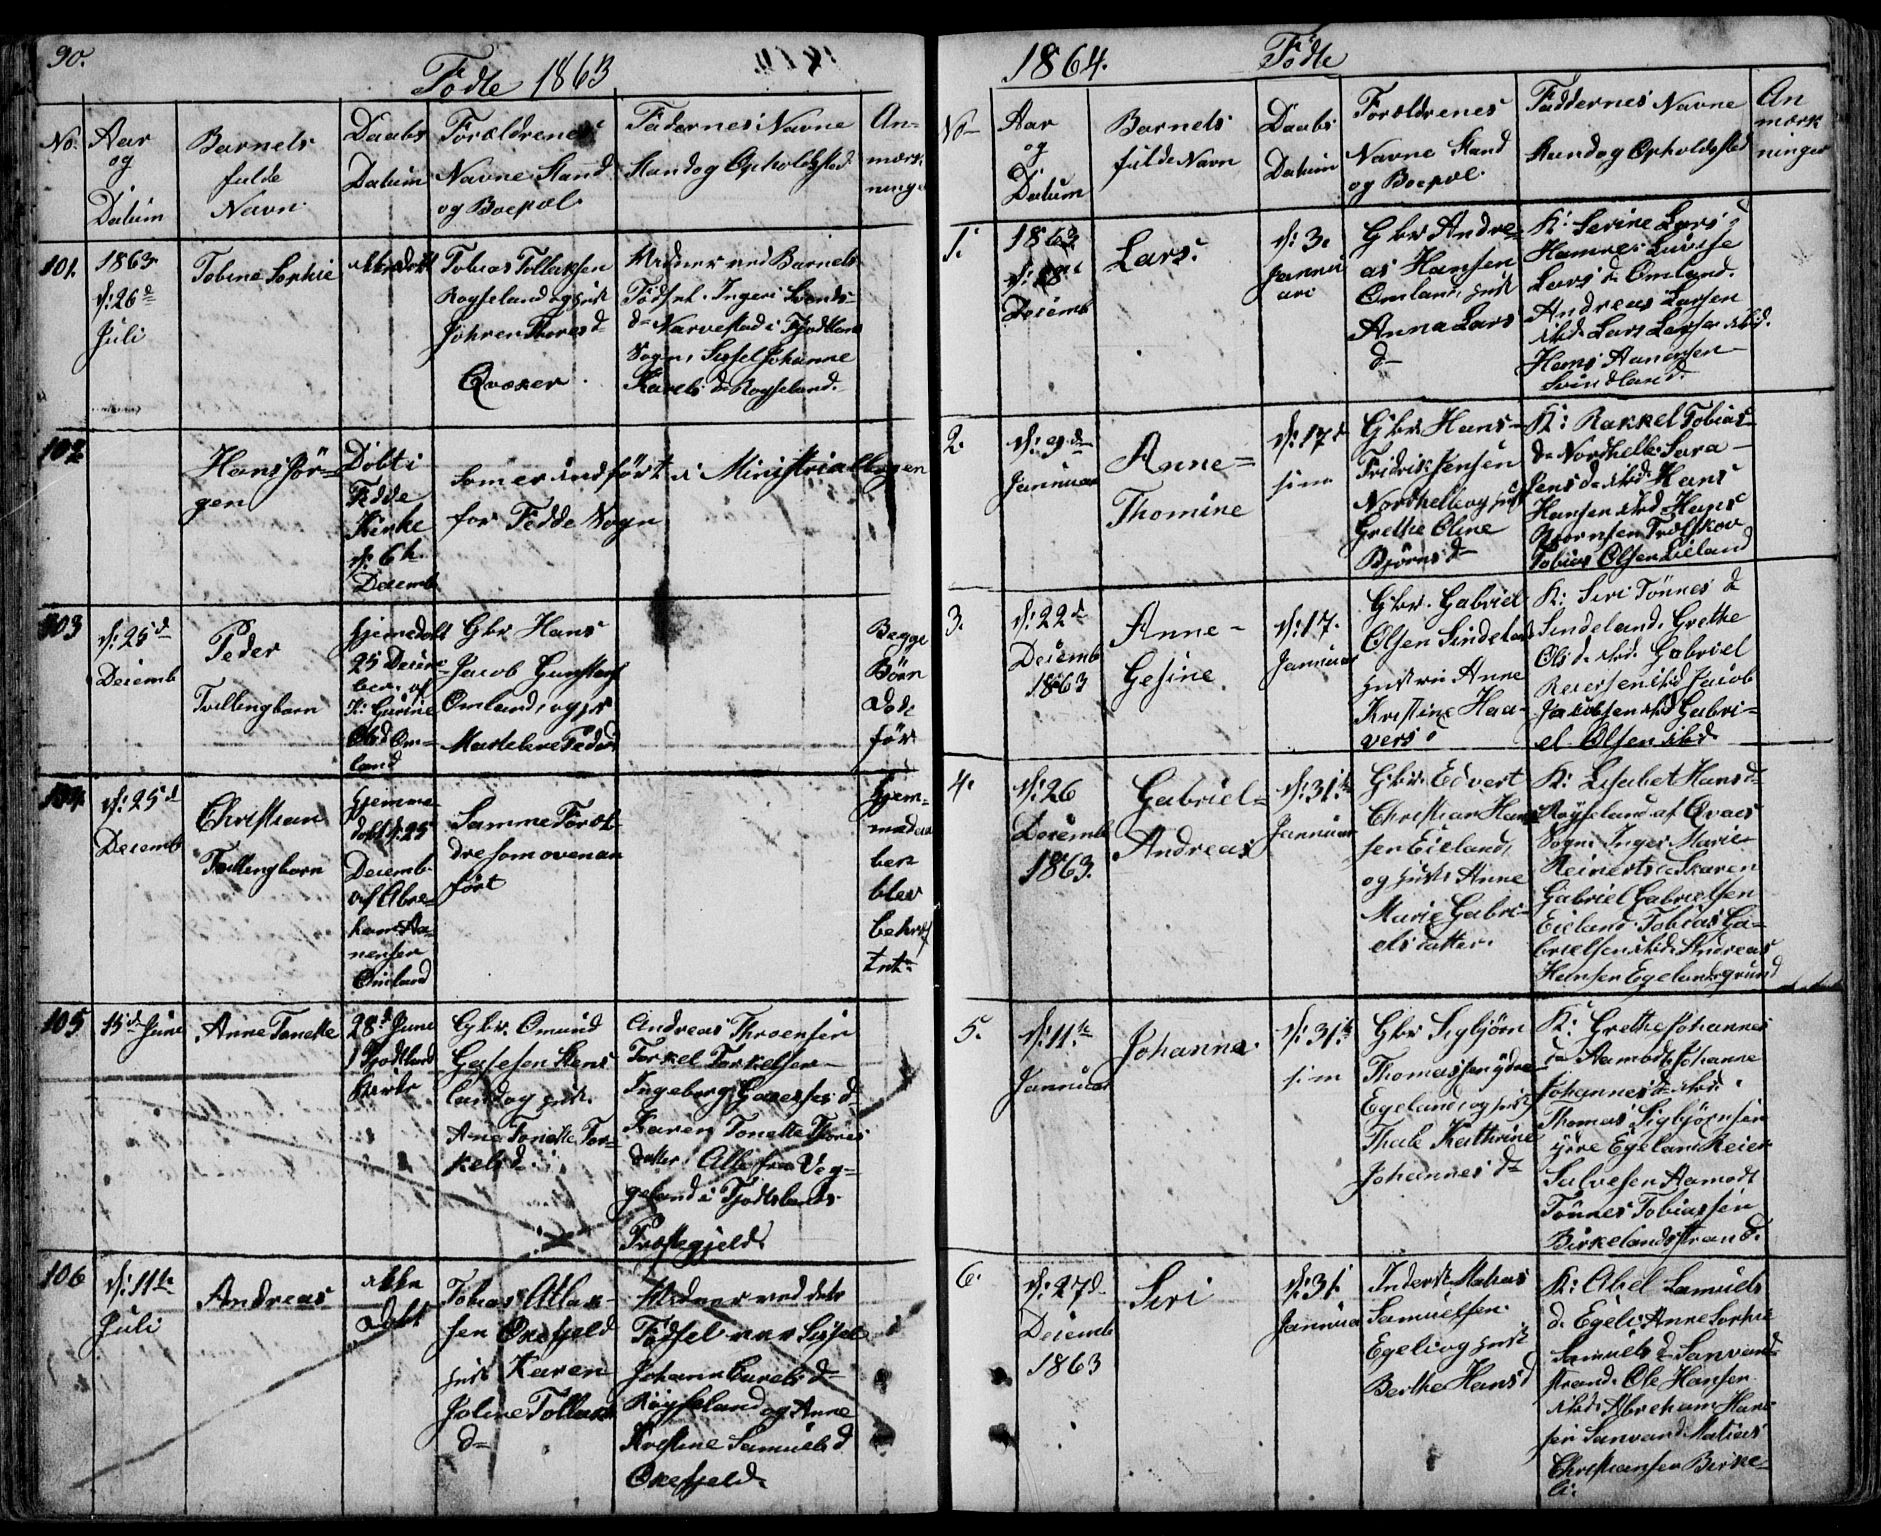 90.
Födte 1863
No.
Aar
og
Datum
Barnets
fulde
Navn
Daabs
Datum
Forældrenes
Navne Stand
og Boepæl
Faddernes Navne
Stand og Opholdsted
An-
mærk
ninger
101.
1863
d: 26d
Juli
Tobine Sophie
Tobias Tollaksen
Røyseland og hust
Thores d
Qvæker
Vidner ved Barnets
Födsel. Ingeri
d Narvestad i Fjodland
Sogn, Sissel Johanne
Karels d Røyseland.
102
Hans Jör-
gen
Döbt i
Fedde
Kirke
d: 6te
Decemb
Som er indfört i Ministrialbogen
for Fedde Sogn
103
d: 25d
Decemb
Peder
Tvillingbarn
hjemedöbt
25 Decem-
ber af
K: Gurine
Ols d Om-
land
Gbr Hans
Jacob
Omland, og
Peders
Begge
Börn
Döde
för
104
d: 25d
Decemb
Christian
Tvillingbarn
hjemme
döbt d: 25
Decemb
af Abra-
ham Aa-
nensen
Omland
Samme Foræl-
dre som ovenan
fört
hjem-
medaa
ben
blev
bekræf
tet
105
15d Juni
Anne Tonette
28d Juni
i Fjodtland
Kirke
Gbr. Omund
Stens
land og hust.
Ane Tonette Tor-
kels d.
Andreas Throensen
Torkel Torkelsen
Ingeborg d
Karen Tonette Thores
datter. Alle fra Veg-
geland i Fjodtlands
Præstegjeld.
106
d: 11te
Juli
Andreas
ikke
döbt
Tobias
sen Okefjeld
hust Karen
Joline Tollaks
d
Vidner ved dets
Födsel var Sissel
Johanne Karels d
Röyseland og Anne
Kristine Samuels d
Okefjeld.
1864. Födte
No
Aar
og
Datum
Barnets
fulde Navn
Daabs
Datum
Forældrenes
Navne Stand
og Boepæl
Faddernes Navne
Stand og Opholdsted
An
mærk
ninger
1.
1863
d: 18
Decemb
Lars.
d: 3.
Januu
ari
Gbr Andre-
as Hansen
Omland, hust
Anna Lars
d
K: Serine Lars d
Hamre. Lovise
Lars d Omland.
Andreas Larsen
ibd. Lars Larsen ibid.
Hans Aanensen
Svindland.
2.
d: 9d
Januar
Anne
Thomine
d: 17d
sim
Gbr. Hans
Fridrik Jensen
Nordhelle og hust
Grethe Oline
Björns d
K: Rakkel Tobias
d Nordhelle Sara
Jens d ibd Hans
Hansen ibd Hans
Bjornsen
Tobias Olsen Lieland
3.
d: 22d
Decemb
1863
Anne
Gesine
d: 17.
Januar
Gbr. Gabriel
Olsen Sindeland
hustru Anne
Kristine Haa-
vers d
K: Siri Tönnes d
Sindeland. Grethe
Ols d ibd. Gabriel
Reiersen ibd Jacob
Jacobsen ibd Gabri-
el Olsen ibd
4.
d: 26
Decemb
1863.
Gabriel
Andreas
d: 31te
Januar
Gbr. Edvert
Christian Han
sen Eieland,
og hust. Anne
Marie Gabri-
elsdatter.
K: Lisabet Hans d
Röyseland af Qvaes
Sogn. Inger Marie
Reinerts d Skaren
Gabriel Gabrielsen
Eieland Tobias Ga-
brielsen ibd. Andreas
Hansen Egelandsgrund
5.
d: 11te
Januar
Johanne
d: 31te
sim
Gbr Sigbjørn
Thomassen ydre
Egeland, og hust
Thale Kathrine
Johannes d
K: Grethe Johannes
d Aamodt Johanne
Johannes d ibd.
Thomas Sigbjörnsen
ydre Egeland Reier
Salvesen Aamodt
Tönnes Tobiassen
Birkelandstrand.
6.
d: 27d
Decemb
1863
Siri
d: 31t
Januar
Inderst Matias
Samuelsen
Egeli og hust
Berthe Hans d
K: Abel Samuels
d. Egeli. Anne Sophie
Samuels d Sanvand
strand. Ole Hansen
ibd. Abreham Han-
sen Sanvand. Matias
Christiansen Birke-
li.